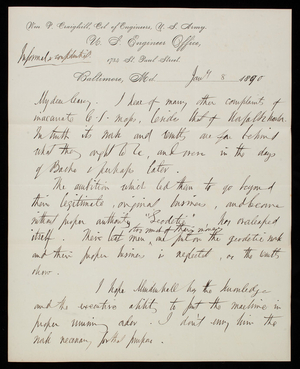 Wm. P. Craighill, Col. of Engineers, U. S. Army.
U. S. Engineer Office,
Informal & confidential
1725 St. Paul Street
Baltimore, Md. Jany 8 1890
My dear Casey: I hear of many other complaints of
inaccurate C. S. maps, besides that of
In truth its work and results are far behind
what they ought to be, and were in the days
of Bache & perhaps later.
The ambition which led them to go beyond
their legitimate, original business, and become
without proper authority "Geodetic" has overleaped
itself. Their best men, are put on the geodetic work
and their proper business is neglected, as the results
show.
I hope Mendenhall has the knowledge
and the executive ability to put the machine in
proper running order. I don't envy him the
work necessary for that purpose.